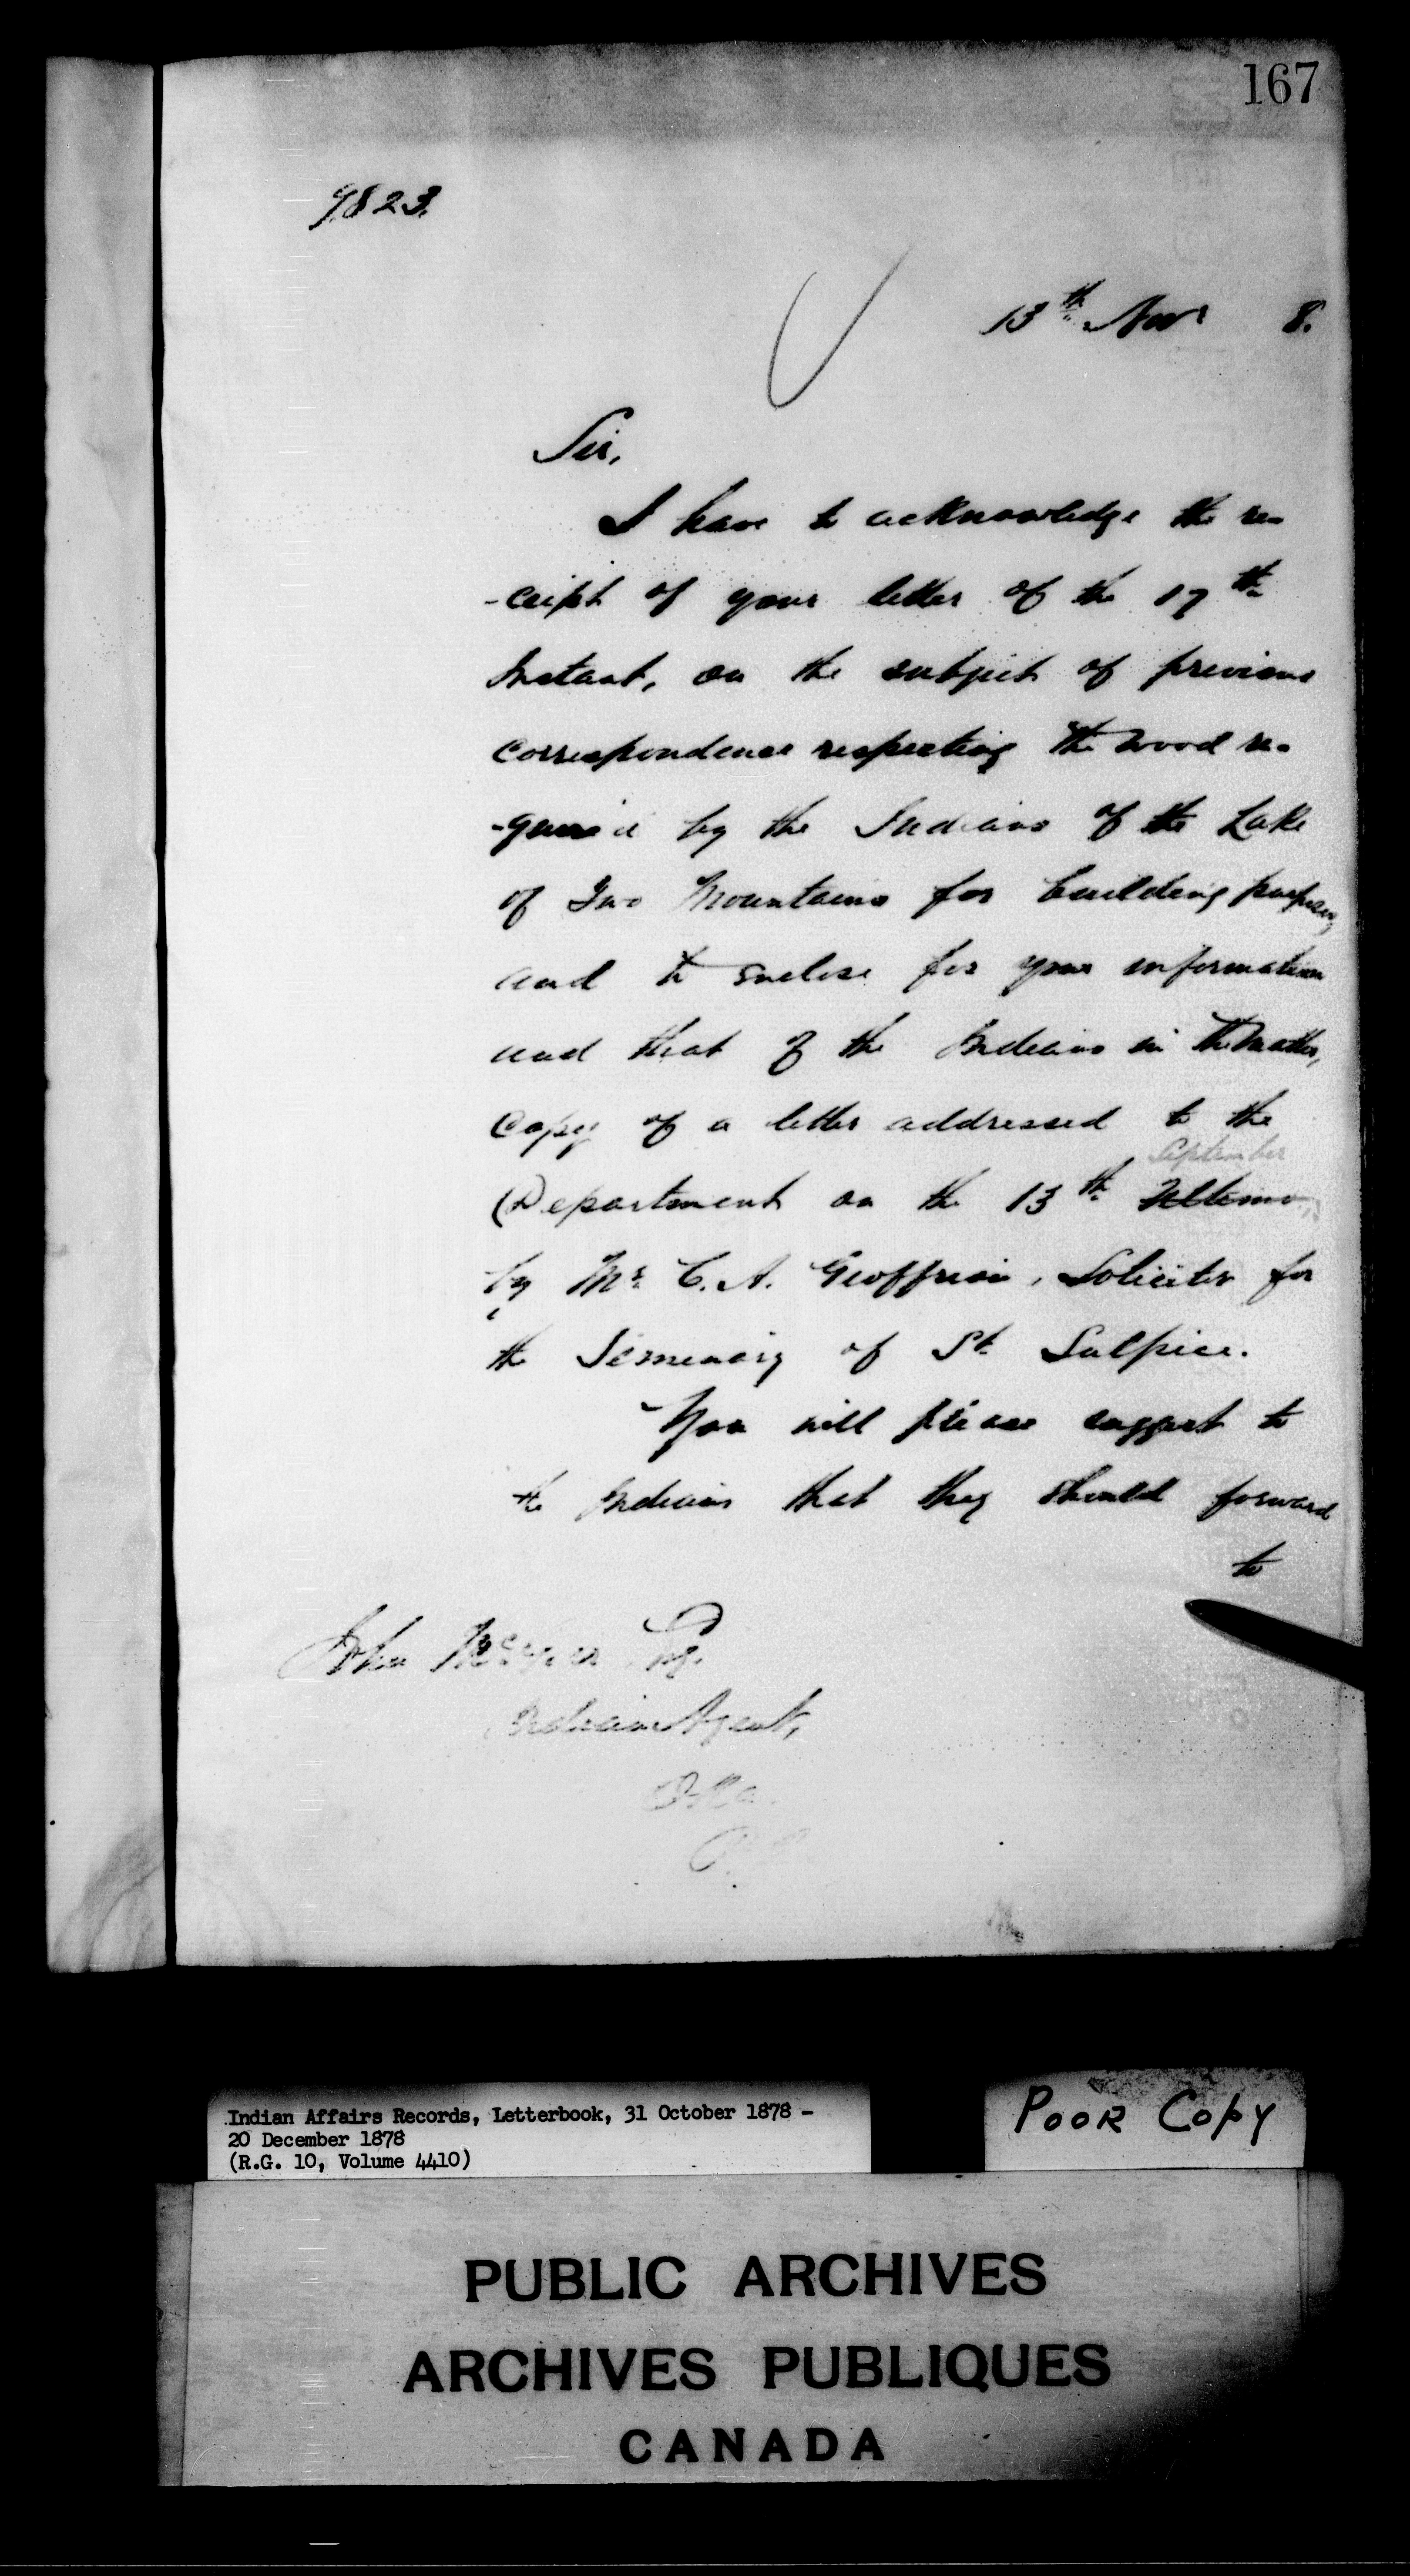 167
9823.
13th Novr 8.
Sir,
I have to acknowledge the re-
-ceipt of your letter of the
Instant, on the subject of previous
correspondence respecting the wood re-
-quired by the Indians of the Lake
of Two Mountains for building purposes,
and to enclose for your information
and that of the Indians in the matter,
copy of a letter addressed to the
September
Department on the 13th Ultimo,
by Mr. C. A. Geoffrion, Solicitor for
the Seminary of St. Sulpice.
You will please suggest to
the Indians that they should forward
to
John Esq.
Indian Agent,
Oka.
Indian Affairs Records, Letterbook, 31 October 1878 -
20 December 1878
(R.G. 10, Volume 4410)
POOR COPY
PUBLIC ARCHIVES
ARCHIVES PUBLIQUES
CANADA